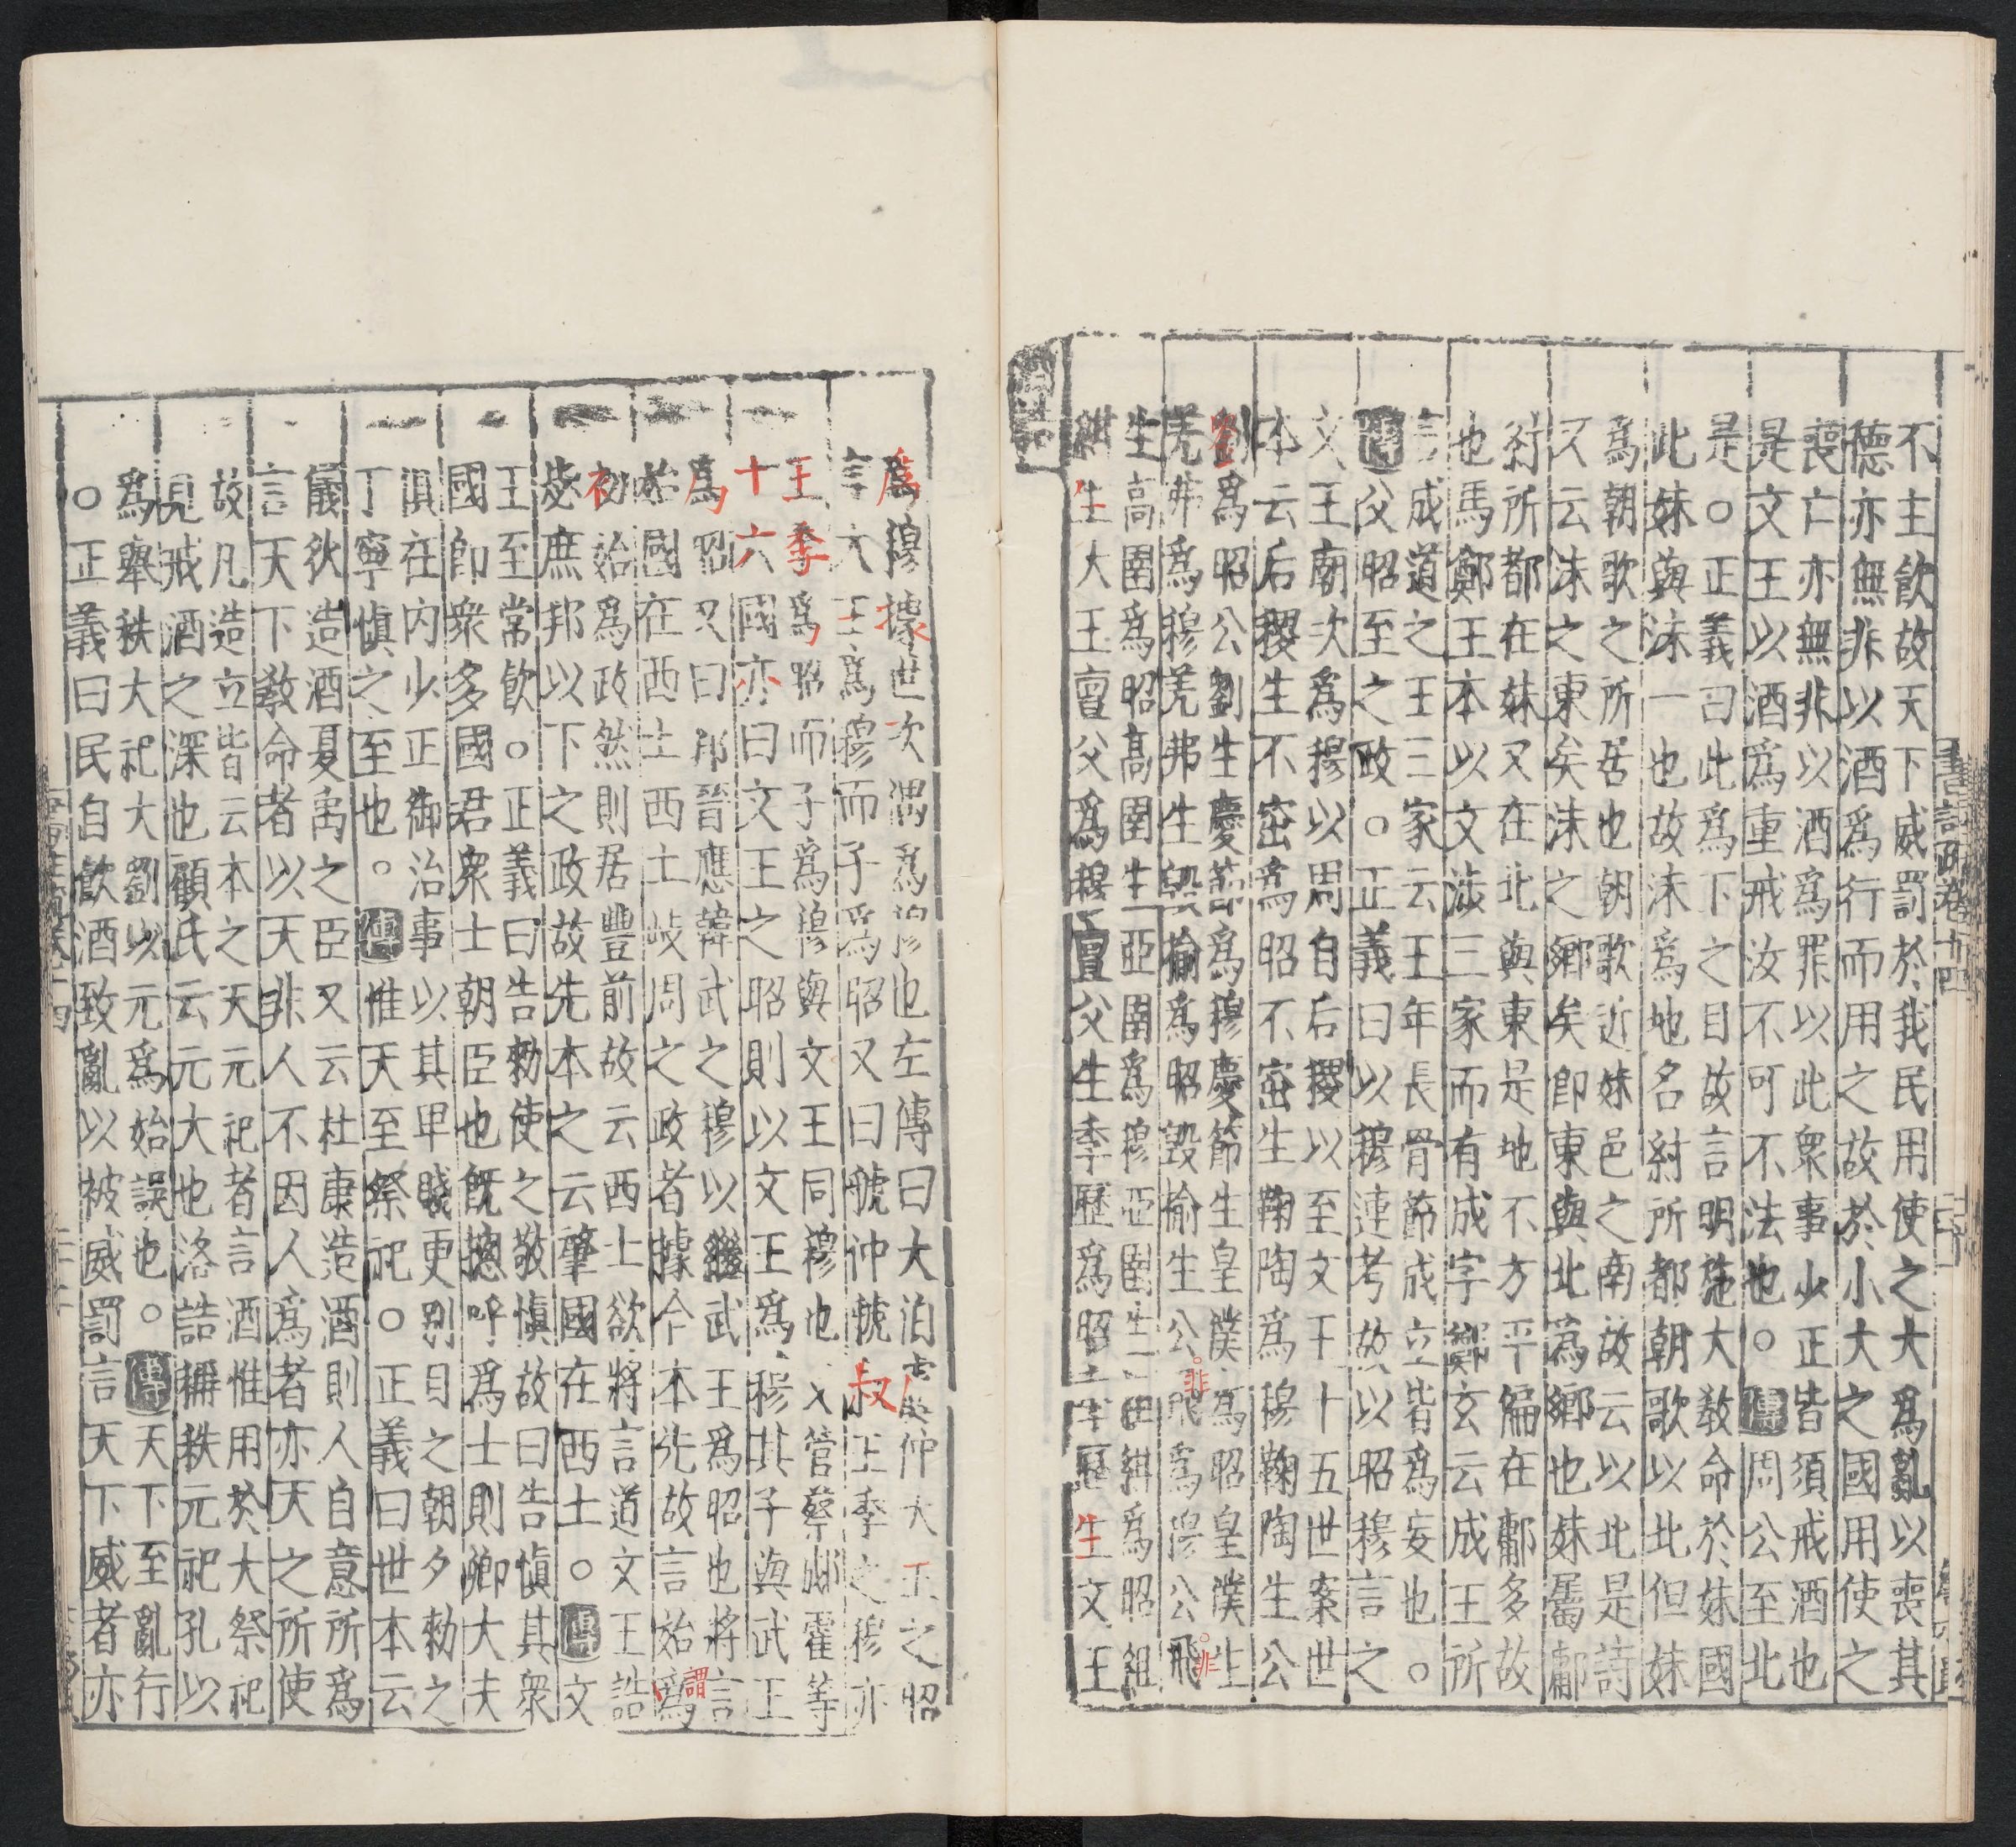 不主飲故天下威罰於我民用使之大爲亂以喪其
德亦無非以酒爲行而用之故於小大之國用使之
喪亡亦無非以酒爲罪以此衆事少正皆須戒酒也
是文王以酒爲重戒汝不可不法也○傳周公至北
是○正義曰此爲下之目故言明施大敎命於妹國
此妹與沬一也故沬爲地名紂所都朝歌以北但妹
爲朝歌之所居也朝歌近妹邑之南故云以北是詩
又云沬之東矣沬之鄉矣卽東與北爲鄉也妹屬鄘
紂所都在妹又在北與東是地不方平偏在鄘多故
也馬鄭王本以文涉三家而有成字鄭玄云成王所
言成道之王三家云王年長骨節成立皆爲妄也○
傳父昭至之政○正義曰以穆連考故以昭穆言之
文王廟次爲穆以周自后稷以至文王十五世案世
本云后稷生不窋爲昭不窋生鞠陶爲穆鞠陶生公
劉爲昭公劉生慶節爲穆慶節生皇僕爲昭皇僕生
羌弗爲穆羌弗生毀揄爲昭毀揄生公飛爲穆公飛
非 非
生高圉爲昭高圉生亞圉爲穆亞圉生組紺爲昭組
紺生大王亶父爲穆亶父生季歷爲昭季歷生文王
酒誥
爲穆據世次偶爲穆也左傳曰大伯虞仲大王之昭
言大王爲穆而子爲昭又曰虢仲虢叔王季之穆亦
王季爲昭而子爲穆與文王同穆也又管蔡郕霍等
十六國亦曰文王之昭則以文王爲穆其子與武王
爲昭又曰邘晉應韓武之穆以繼武王爲昭也將言
始國在西土西土岐周之政者據今本先故言始爲
謂
初始爲政然則居豐前故云西土欲將言道文王誥
毖庶邦以下之政故先本之云肇國在西土○傳文
王至常飲○正義曰告勑使之敬愼故曰告愼其衆
國卽衆多國君衆士朝臣也旣摠呼爲士則卿大夫
俱在內少正御治事以其卑賤更別目之朝夕勑之
丁寧愼之至也○傳惟天至祭祀○正義曰世本云
儀狄造酒夏禹之臣又云杜康造酒則人自意所爲
言天下敎命者以天非人不因人爲者亦天之所使
故凡造立皆云本之天元祀者言酒惟用於大祭祀
見戒酒之深也顧氏云元大也洛誥稱秩元祀孔以
爲舉秩大祀大劉以元爲始誤也○傳天下至亂行
○正義曰民自飲酒致亂以被威罰言天下威者亦